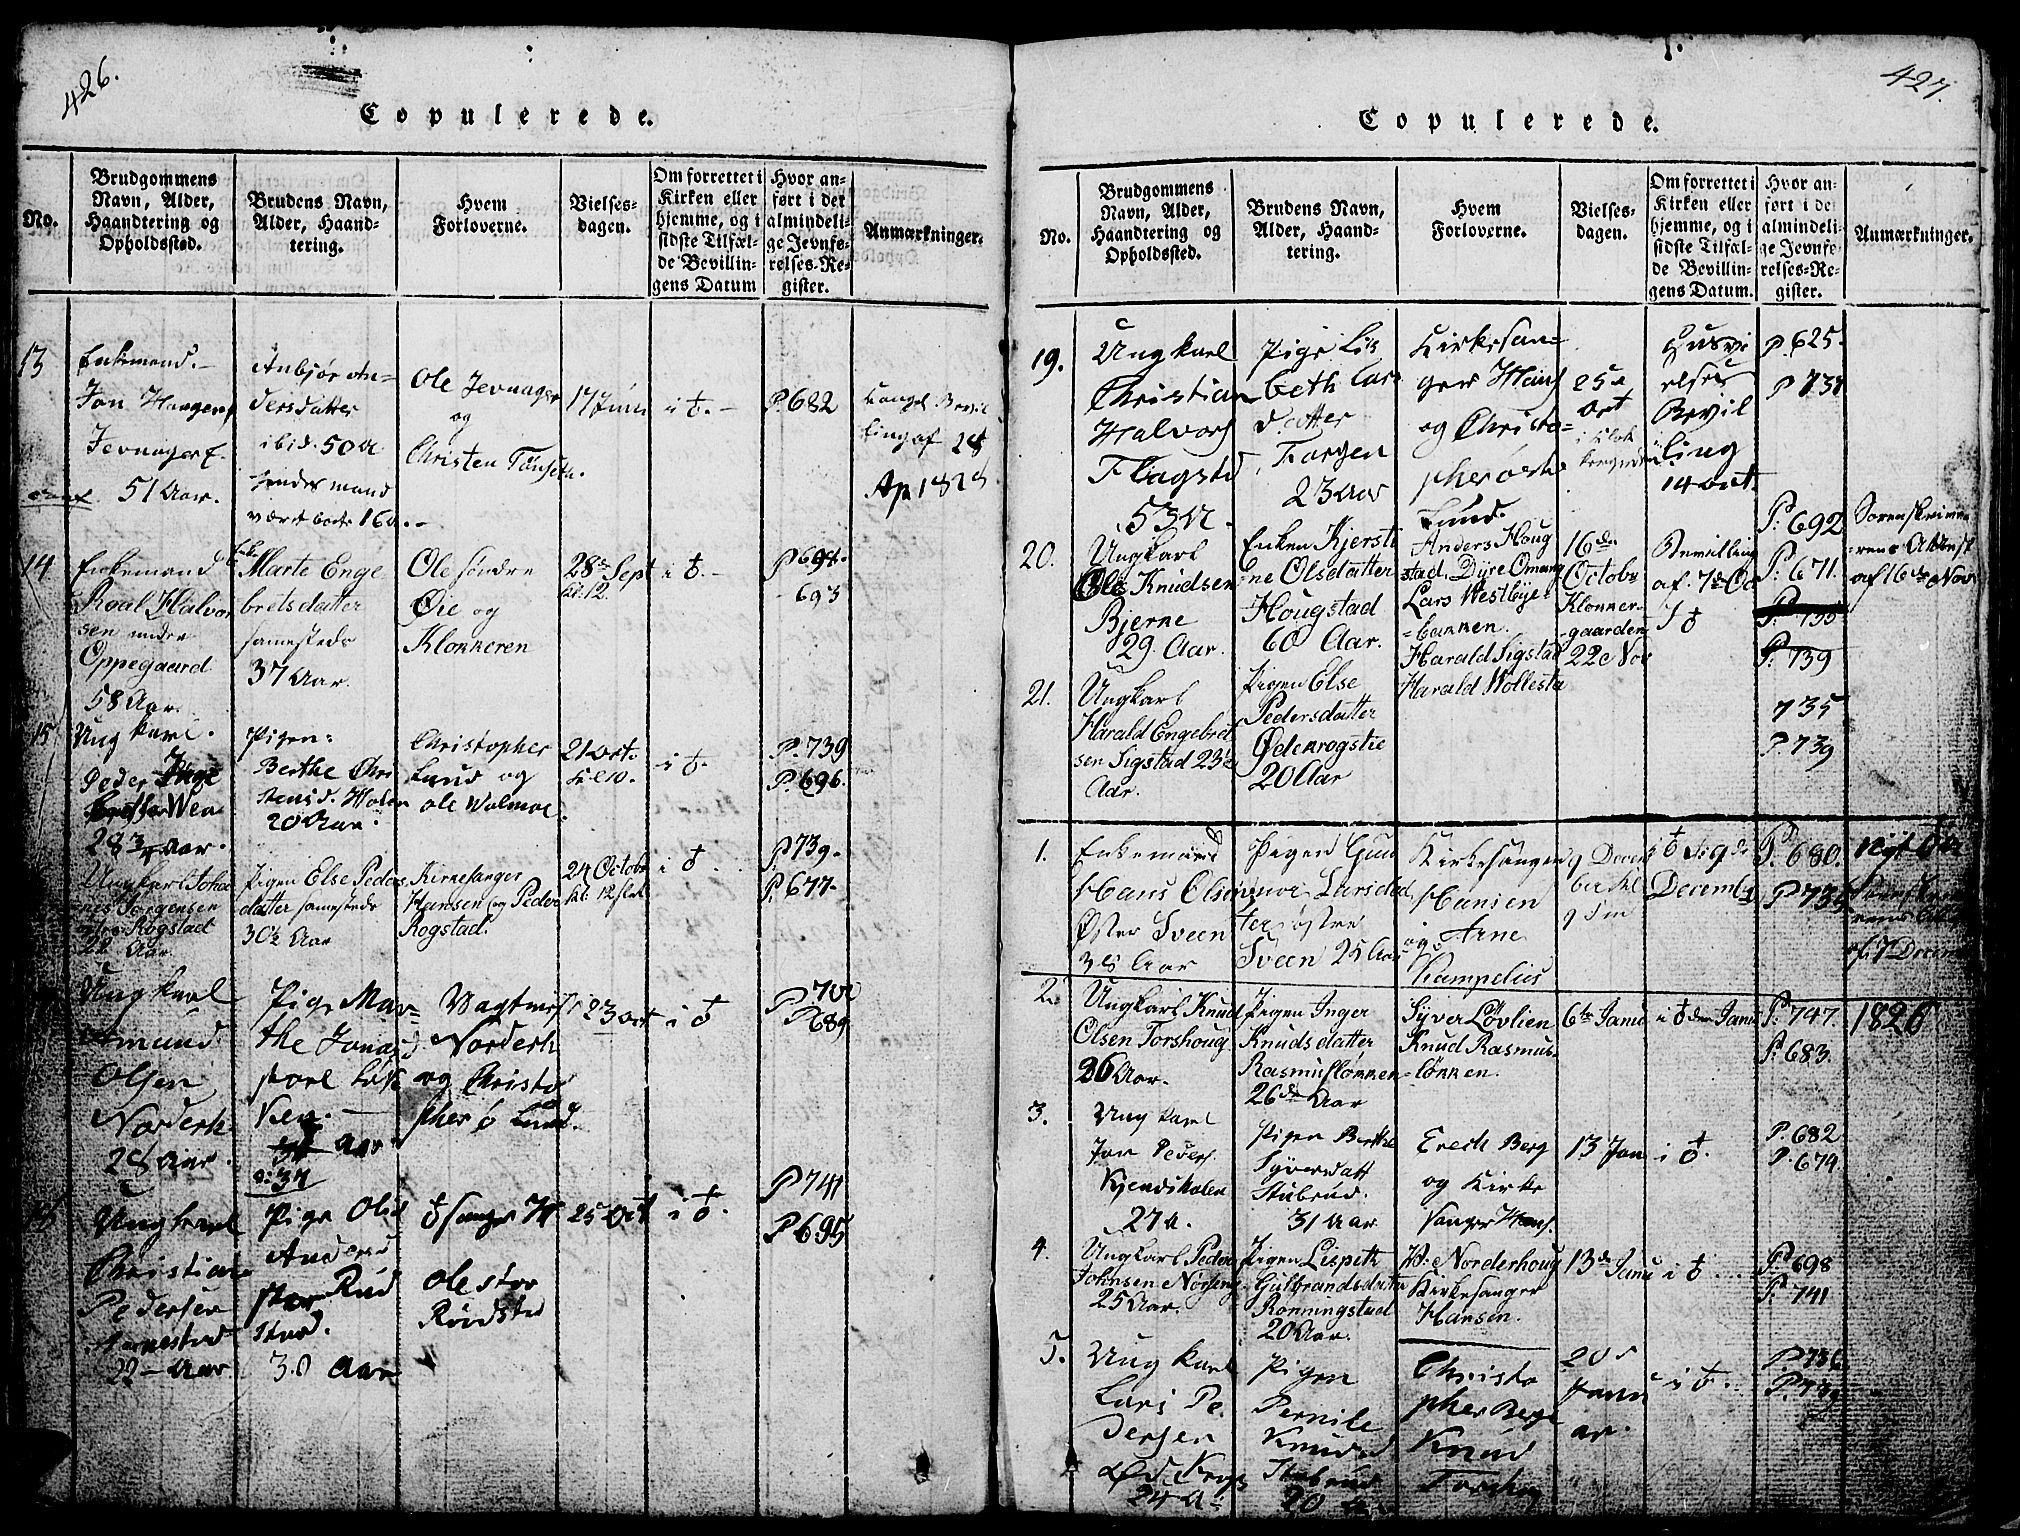 426.
Copulerede.
No.
Brudgommens
Navn, Alder,
Haandtering og
Opholdssted.
Brudens Navn,
Alder, Haand-
tering.
Hvem
Forloverne.
Vielses-
dagen.
Om forrettet i
Kirken eller
hjemme, og i
sidste Tilfæl-
de Bevillin-
gens Datum
Hvor an-
ført i det
almindeli-
ge Jevnfø-
relses-Re-
gister.
Anmærkninger.
13
Enkemand.
Jon Haagens
Jevnager E.
51 Aar.
Anbjør An-
dersdatter
ibid. 50 A
hendes mand
været borte 16 a.
Ole Jevnager
og
Christen Tønseth.
17 Juni
i ♁.
P. 682
Kongel. Bevil
ling af 28
Ap 1825
14
Enkemand
Roal Halvor
sen under
Oppegaard
58 Aar.
Enke
Marte Enge
bretsdatter
samesteds
37 Aar.
Ole søndre
Øie og
Klokkeren
28de Sept
kl. 12.
i ♁.
P 694.
693
15
Ungkarl.
Peder
Wea
28 3/4 Aar.
Pigen
Berthe Chri
stensd. Holen
20 Aar.
Christopher
Lund og
Ole Wolmoe.
21 Oct.
Kl 10.
i ♁.
P. 739
P. 696.
Ungkarl Joha
nes Jørgensen
Rogstad
28 Aar.
Pigen Else Peders
datter samesteds
30½ Aar
Kirkesanger
Hansen og Peder
Rogstad.
24 Octobr
kl. 12 slet
i ♁.
P 739.
P. 677.
Ungkarl
Amund
Olsen
Norderh
28 Aar.
Pige Mar
the Jonasd
stoel Løk
ken.
Aar
: 37
Wagtmest
Norderh
og Christo
pher ø Lund.
23 oct
i ♁
P. 700
P 689
Ungkarl
Christian
Pedersen
Arnestad
22 Aar
Pige Olia
Anders
stor Rud
stad.
30 Aar
♁sanger H
Ole stor
Rødsted
25 Oct
i ♁.
P 741
P 695
427.
Copulerede.
No.
Brudgommens
Navn, Alder,
Haandtering og
Opholdssted.
Brudens Navn,
Alder, Haand-
tering.
Hvem
Forloverne.
Vielses-
dagen.
Om forrettet i
Kirken eller
hjemme, og i
sidste Tilfæl-
de Bevillin-
gens Datum.
Hvor an-
ført i de
almindeli-
ge Jevnfø-
relses-Re-
gister.
Anmærkninger.
19.
Ungkarl
Christian
Halvors
Flagstd
53 A.
Pige Lis
beth Lars
datter
Torgen
23 Aar
Kirkesan-
ger Hans
og Christo-
pher østre
Lund.
25de
Oct
i Klok
kergaarden
Husvi
elses
Bevil
ling
14 oct.
P. 625.
P 737
20.
Ungkarl
Ole Knudsen
Bjerne
29 Aar.
Enken Kjersti
ne Olsdatter
Hougstad
60 Aar.
Anders Houg
stad, Dyre Omang
Lars Westbye-
bakken.
16de
Octobr
Klokker-
gaarden
Bevilling
af 7de Oc
P: 692
P: 671.
Sorenskrive
rens Attest
af 16de Nov
21.
Ungkarl
Harald Engebret
sen Sigstad 23½
Aar.
Pigen Else
Pedersdatter
Ødenrogstie
20 Aar
Harald Sigstad
Harald Wollesta
22de Nov
i ♁
P. 735
P. 739
735
P 739
1.
Enkemand
Hans Olsen
Øster Sveen
38 Aar
Pigen Gun
nor Larsdat
ter østre
Sveen 25 Aar
Kirkesanger
Hansen
og Arne
Kampelius
9 Decem
ber kl
i ♁ d. 9de
Decembr
P. 680.
P 735
af 7de Decem
2.
Ungkarl Knud
Olsen Torshoug
26 Aar.
Pigen Inger
Knudsdatter
Rasmusløkken
26de Aar
Syver Løvlien
Knud Rasmus-
løkken.
6te Janu
i ♁ den Janu
P. 747.
P. 683.
1826
3.
Ungkarl
Jon Peders.
Kjendsholen
27 A.
Pigen Berthe
Syverdatt
Stubrud.
31 Aar
Erich Berg
og Kirke
sanger Hans.
13 Jan
i ♁.
P. 682
P. 674.
4.
Ungkarl Peder
Johnsen Nøseng
25 Aar.
Pigen Lispeth
Gulbrandsdatter
Ronningstad
20 Aar.
W: Norderhoug
Kirkesanger
Hansen.
13de Janu
i ♁.
P: 698
P. 741
5.
Ungkarl
Lars Pe
dersen
24 A
Pigen
Pernile
Knudsd
Stubrud
20
Christo
pher Berge
Knud
Torshoug
20
Janu
ar.
i ♁.
P 736
P. 739